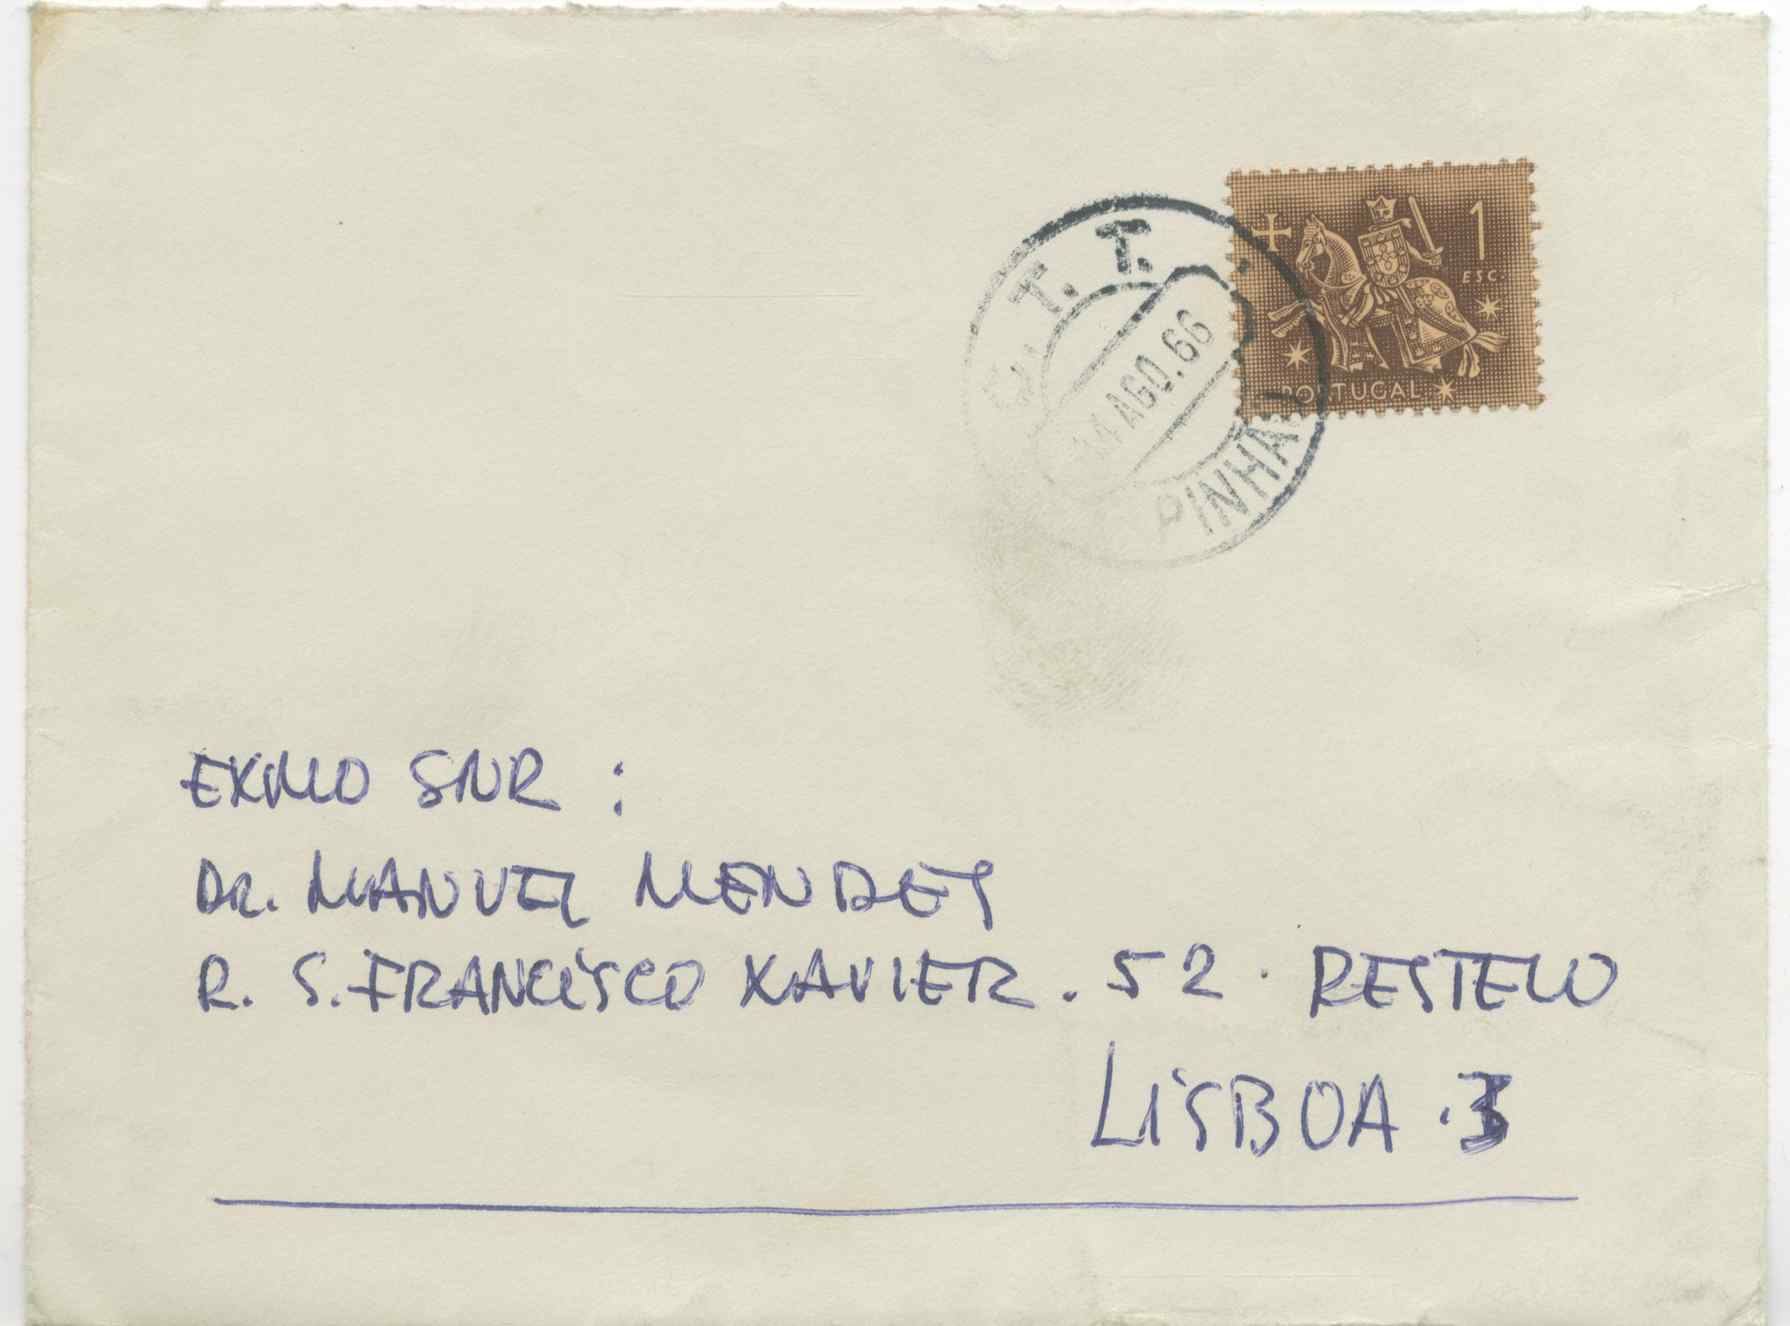 1
ESC.
PORTUGAL
C. T. T.
14 AGO. 66
PINHÃO
EXMO SNR :
DR. MANUEL MENDES
R. S. FRANCISCO XAVIER . 52 . RESTELO
LISBOA . 3